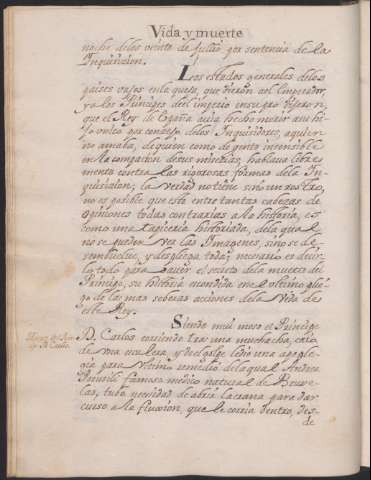 Vida y muerte
noche delos veinte de Jullio por sentencia de la
Inquisicion.
Los estados generales delos
paises vajos en la quexa, que dieron ael Emperador,
y a los Principes del imperio en su gro dixeron,
que el Rey de España avia hecho morir a su hi-
jo unico por consejo delos Inquisidores, a quien
no amaba, de quien como de gente insensible
en la compacion de sus miserias hablava libre
mente contra las rigorosas formas dela In-
quisicion; la verdad no tiene sino un rostro,
no es posible que este entre tantas cabezas de
opiniones todas contrarias a la historia, es
como una tapiceria historiada, dela qual
no se pueden ver las Imagenes, sino se de
sembuelve, y despliega toda; necesario es decir
la todo para saver el secreto dela muerte del
Principe, su historia escondida en el ultimo plie-
go de las mas seberas acciones dela Vida de
este Rey.
Siendo mui mozo el Principe
D. Carlos corriendo tras una muchacha, caio
de una escalera, y del golpe le dio una apople-
gia para ultimo remedio dela qual Andres
famoso medico natural de Bruse-
las, tubo necesidad de abrir la crana para dar
curso a la fluxion, que le corria dentro, des-
de
D. Carlos.